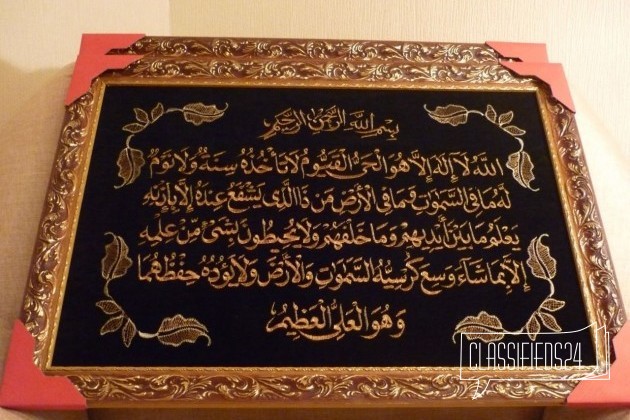 بِسْمِ اللَّهِ الرَّحْمَنِ الرَّحِيمِ
اللَّهُ لَا إِلَهَ إِلَّا هُوَ الْحَيُّ الْقَيُّومُ لَا تَأْخُذُهُ سِنَةٌ وَلَا نَوْمٌ
لَهُ مَا فِي السَّمَوَاتِ وَمَا فِي الْأَرْضِ مَنْ ذَا الَّذِي يَشْفَعُ عِنْدَهُ إِلَّا بِإِذْنِهِ
يَعْلَمُ مَا بَيْنَ أَيْدِيهِمْ وَمَا خَلْفَهُمْ وَلَا يُحِيطُونَ بِشَيْءٍ مِنْ عِلْمِهِ
إِلَّا بِمَا شَاءَ وَسِعَ كُرْسِيُّهُ السَّمَوَاتِ وَالْأَرْضَ وَلَا يَئُودُهُ حِفْظُهُمَا
وَهُوَ الْعَلِيُّ الْعَظِيمُ
CLASSIFIEDS24.RU